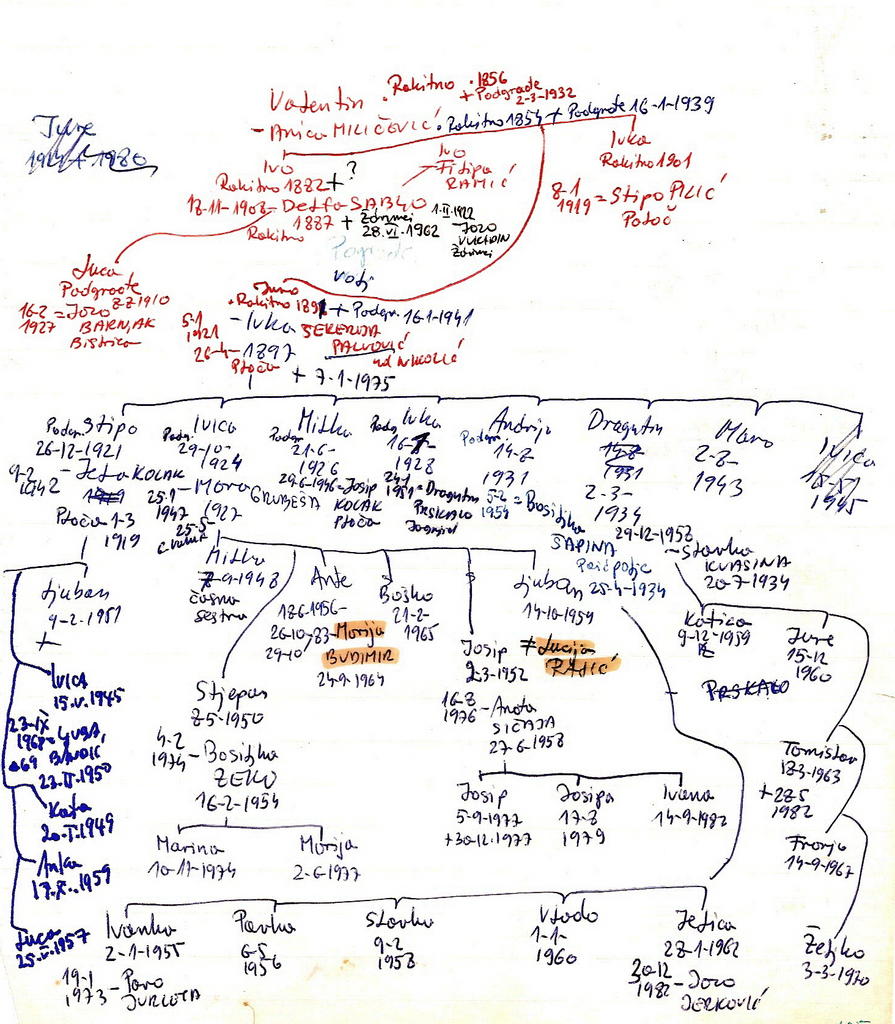 Valentin • Rakitno • 1856
+ Podgrađe
2-3-1932
- Anica MILIČEVIĆ • Rakitno 1854 + Podgrađe 16-1-1939
Jure
Ivo
Rakitno 1882 + ?
Ivo
Filipa
RAMIĆ
Ivka
Rakitno 1901
8-1
1919 = Stipo PILIĆ
Potoč
1887 + Ždrimci
28.VI.1962
1-II-1922
Jozo
VUKADIN
Ždrimci
Rakitno
Luca
Podgrađe
2-2-1910
16-2
1927 = Jozo
BARNJAK
Bistrica
+ Podgr. 16-1-1941
5-1
1921
- Ivka
SEKERIJA
PAVKOVIĆ
26-4-
1897
Ploča
+ 7-1-1975
Podgr. Stipo
26-12-1921
9-2
1942
- Jela KOLAK
Ploča 1-3
1919
Podgr. Ivica
29-10-
1924
25-1
1947
- Mara GRUBEŠA
1927
25-5
Milka
Podgr. 21-6-
1926
29-6-1946 = Josip
KOLAK
Ploča
Podgr. Ivka
1928
1951 = Dragutin
PRSKALO
Andrija
Podgr. 14-8
1931
5-2
1954 = Bosiljka
ŠAPINA
25-4-1934
Dragutin
1931
2-3-
1934
29-12-1958
- Slavka
KVASINA
20-7-1934
Maro
2-8-
1943
Ivica
1945
Ljuban
9-2-1951
+
Ivica
15.V.1945
23-IX
1968 = Ljuba
23.II.1950
Kata
20-I-1949
Anka
17.X.1959
Luca
25.V.1957
Milka
-9-1948
časna
sestra
Ante
18-6-1956-
26-10-83 - Marija
29-10 BUDIMIR
24-9-1964
Boško
21-2-
1965
Josip ≠ Lucija
RAJIĆ
9-3-1952
16-8
1976 - Aneta
SIČAJA
27-6-1958
Ljuban
14-10-1959
Katica
9-12-1959
Jure
15-12
1960
PRSKALO
Stjepan
8-5-1950
4-2
1974 - Bosiljka
ZEKO
16-2-1954
Tomislav
18-3-1963
+ 28-5
1982
Josip
5-9-1977
+ 30-12-1977
Josipa
17-8
1979
Ivana
14-9-1982
Marina
10-11-1974
Marija
2-6-1977
Franjo
14-9-1967
Ivanka
2-1-1955
19-1
1973 - Pavo
JURLETA
Pavka
6-5
1956
Slavka
9-2
1958
Vlado
1-1-
1960
Jelica
28-1-1962
30-12
1982 - Jozo
JERKOVIĆ
Željko
3-3-1970